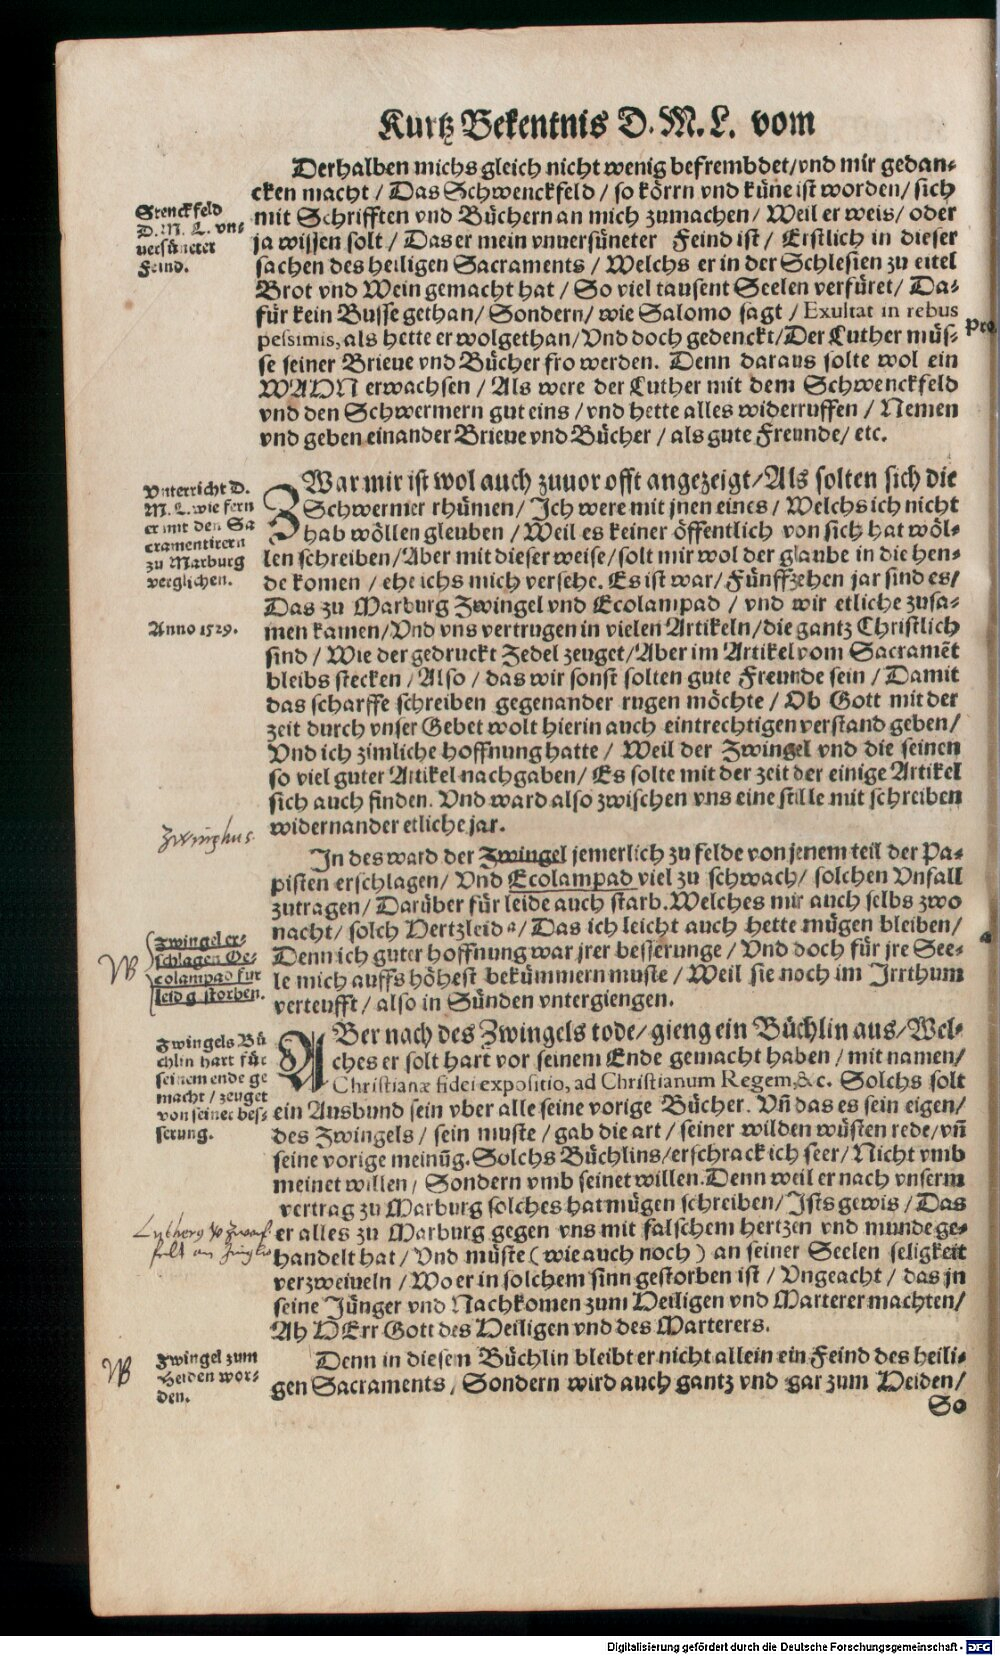 Kurtz Bekentnis D. M. L. vom
Derhalben michs gleich nicht wenig befrembdet/vnd mir gedan-
cken macht / Das Schwenckfeld / so körrn vnd küne ist worden/ sich
mit Schrifften vnd Büchern an mich zumachen / Weil er weis / oder
ja wissen solt / Das er mein vnuersüneter Feind ist / Erstlich in dieser
sachen des heiligen Sacraments / Welchs er in der Schlesien zu eitel
Brot vnd Wein gemacht hat / So viel tausent Seelen verfüret / Da-
für kein Busse gethan / Sondern / wie Salomo sagt / Exultat in rebus
pessimis, als hette er wolgethan / Vnd doch gedenckt/Der Luther müs-
se seiner Brieue vnd Bücher fro werden. Denn daraus solte wol ein
WAHN erwachsen / Als were der Luther mit dem Schwenckfeld
vnd den Schwermern gut eins / vnd hette alles widerruffen / Nemen
vnd geben einander Brieue vnd Bücher / als gute Freunde / etc.
Stenckfeld
D. M. L. vn-
uersüneter
Feind.
Pro
ZWar mir ist wol auch zuuor offt angezeigt/Als solten sich die
Schwermer rhümen / Ich were mit jnen eines / Welchs ich nicht
hab wöllen gleuben / Weil es keiner öffentlich von sich hat wöl-
len schreiben/Aber mit dieser weise/solt mir wol der glaube in die hen-
de komen / ehe ichs mich versehe. Es ist war/ Fünffzehen jar sind es/
Das zu Marburg Zwingel vnd Ecolampad / vnd wir etliche zusa-
men kamen/Vnd vns vertrugen in vielen Artikeln/die gantz Christlich
sind / Wie der gedruckt Zedel zeuget/Aber im Artikel vom Sacramēt
bleibs stecken / Also / das wir sonst solten gute Freunde sein / Damit
das scharffe schreiben gegenander rugen möchte / Ob Gott mit der
zeit durch vnser Gebet wolt hierin auch eintrechtigen verstand geben/
Vnd ich zimliche hoffnung hatte / Weil der Zwingel vnd die seinen
so viel guter Artikel nachgaben/ Es solte mit der zeit der einige Artikel
sich auch finden. Vnd ward also zwischen vns eine stille mit schreiben
widernander etliche jar.
Vnterricht D.
M. L. wie fern
er mit den Sa
cramentirern
zu Marburg
verglichen.
Anno 1529.
In des ward der Zwingel jemerlich zu felde von jenem teil der Pa-
pisten erschlagen/ Vnd Ecolampad viel zu schwach/ solchen Vnfall
zutragen / Darüber für leide auch starb. Welches mir auch selbs zwo
nacht/ solch Hertzleid a/ Das ich leicht auch hette mügen bleiben/
Denn ich guter hoffnung war jrer besserunge / Vnd doch für jre See-
le mich auffs höhest bekümmern muste / Weil sie noch im Jrrthum
verteufft / also in Sünden vntergiengen.
a
Zwinglius
W
Zwingel er-
schlagen Oe-
colampad für
leid g storben.
ABer nach des Zwingels tode / gieng ein Büchlin aus/Wel-
ches er solt hart vor seinem Ende gemacht haben / mit namen/
Christianæ fidei expositio, ad Christianum Regem, &c. Solchs solt
ein Ausbund sein vber alle seine vorige Bücher. Vn̄ das es sein eigen/
des Zwingels / sein muste / gab die art / seiner wilden wüsten rede/vn̄
seine vorige meinūg. Solchs Büchlins/erschrack ich seer/ Nicht vmb
meinet willen / Sondern vmb seinet willen. Denn weil er nach vnserm
vertrag zu Marburg solches hat mügen schreiben/ Ists gewis / Das
er alles zu Marburg gegen vns mit falschem hertzen vnd munde ge-
handelt hat / Vnd müste ( wie auch noch ) an seiner Seelen seligkeit
verzweiueln / Wo er in solchem sinn gestorben ist / Vngeacht / das jn
seine Jünger vnd Nachkomen zum Heiligen vnd Marterer machten/
Ah HErr Gott des Heiligen vnd des Marterers.
Zwingels Bü
chlin hart für
seinem ende ge
macht / zeuget
von seiner bes-
serung.
Denn in diesem Büchlin bleibt er nicht allein ein Feind des heili-
gen Sacraments / Sondern wird auch gantz vnd gar zum Heiden/
So
W
Zwingel zum
Heiden wor-
den.
Digitalisierung gefördert durch die Deutsche Forschungsgemeinschaft - DFG